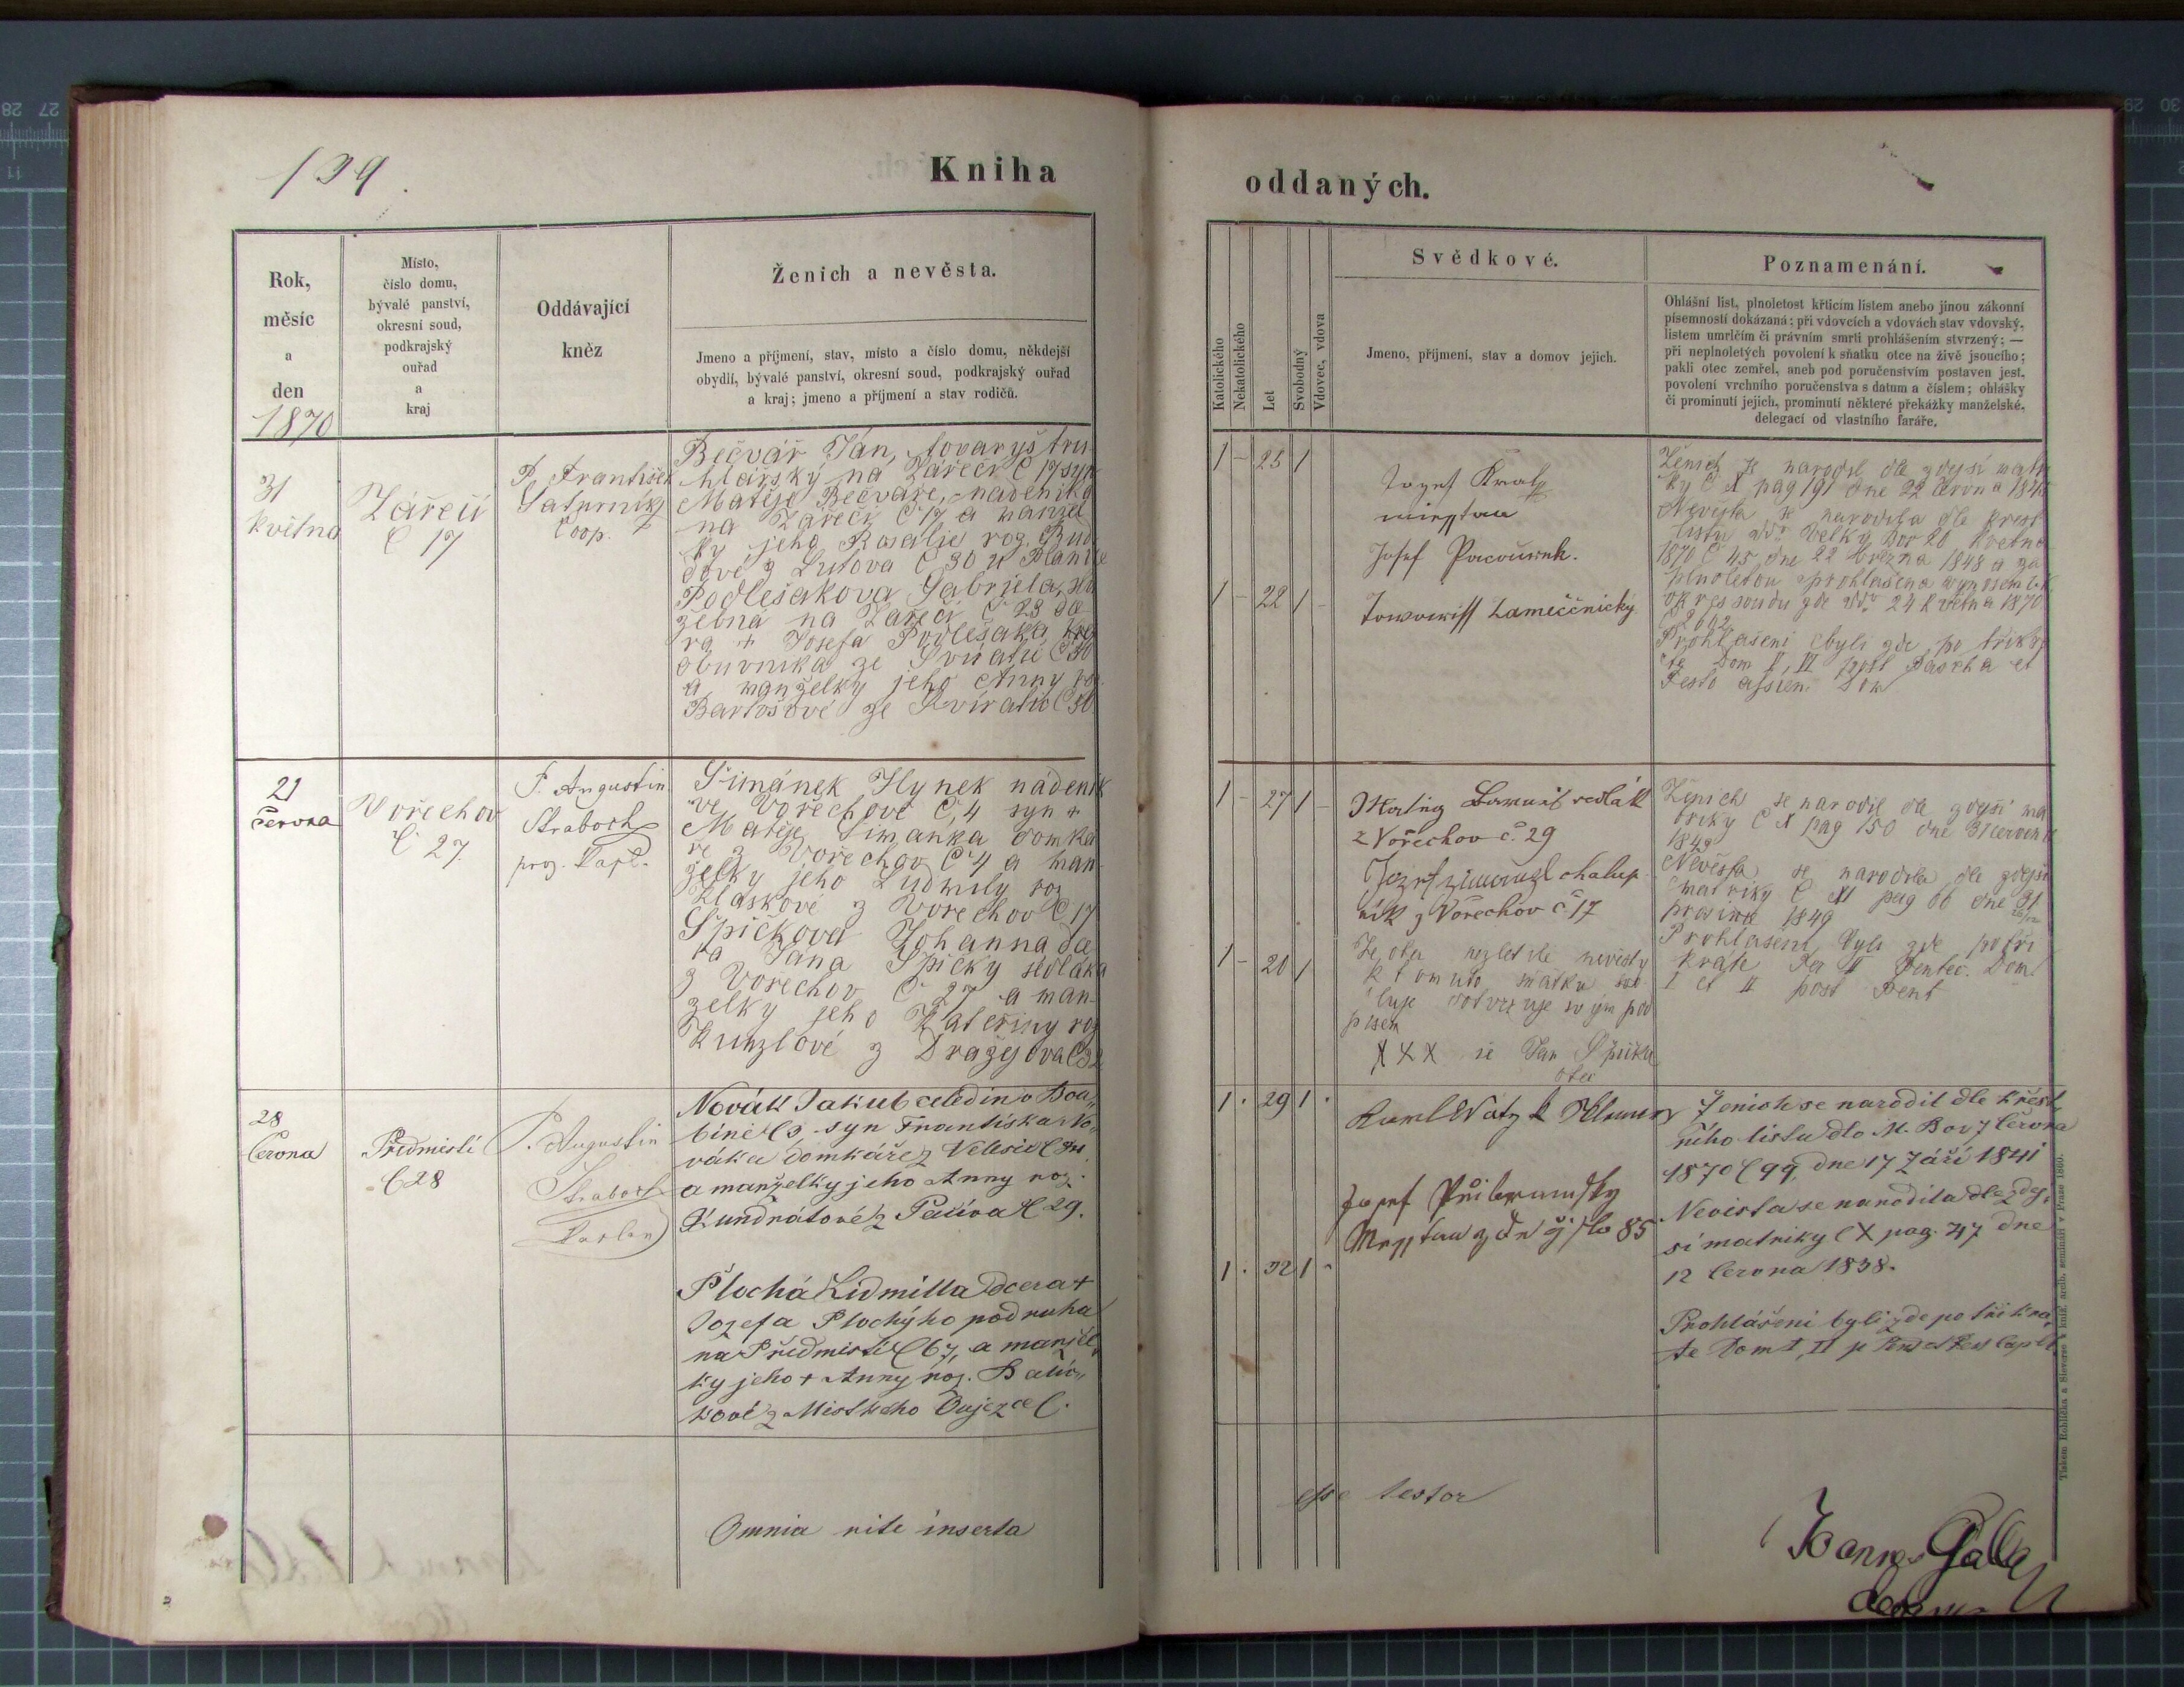 139.
Kniha
oddaných.
Rok,
měsíc
a
den
1870
Místo,
číslo domu,
bývalé panství,
okresní soud,
podkrajský
ouřad
a
kraj
Oddávající
kněz
Ženich a nevěsta.
Jmeno a příjmení, stav, místo a číslo domu, někdejší
obydlí, bývalé panství, okresní soud, podkrajský ouřad
a kraj; jmeno a příjmení a stav rodičů.
Katolického
Nekatolického
Let
Svobodný
Vdovec, vdova
Svědkové.
Jmeno, příjmení, stav a domov jejich.
Poznamenání.
Ohlášní list, plnoletost křticím listem anebo jinou zákonní
písemností dokázaná; při vdovcích a vdovách stav vdovský,
listem umrlčím či právním smrti prohlášením stvrzený; —
při neplnoletých povolení k sňatku otce na živě jsoucího;
pakli otec zemřel, aneb pod poručenstvím postaven jest,
povolení vrchního poručenstva s datum a číslem; ohlášky
či prominutí jejich, prominutí některé překážky manželské,
delegací od vlastního faráře.
31
května
Zářečí
Č 17
P. František
Saturník
Coop.
Bečvář Jan, tovaryš tru
hlářský na Zářečí Č 17 syn
Matěje Bečváře, nádeníka
na Zářečí Č 17 a manžel
ky jeho Rosalie roz.
Podlešakova Gabriela,
žebná na Zářečí Č 23 dce
ra + Josefa Podlešáka,
obuvníka ze Svíratic Č 30
a manželky jeho Anny roz.
Bartošové ze Svíratic Č 30
1 - 25 1
1 - 22 1 -
Jozef Kral
Josef Pacourek.
Zameččnický
Ženich se narodil dle zdejší matri
ky Č X pag 191 dne 22 června
Nevěsta se narodila dle křest
listu Velký Bor 20 května
1870 Č 45 dne 22 března 1848 a za
plnoletou prohlášena
okres soudu 24 května 1870
Č 2692
Prohlášeni byli zde po třikrá
te Dom II, III post Pascha et
Festo
21
června
Vořechov
Č 27.
P. Augustin
Straboch
Kapl.
Šimánek Hynek nádeník
ve Vořechově Č, 4 syn +
Matěje Šimánka domka
ře z Vořechov Č 4 a man
želky jeho Ludmily roz
Kláskové z Vořechov Č 17
Špičkova Johanna dce
ra Jana Špičky sedláka
z Vořechov Č 27 a man
želky jeho Kateřiny roz
Kunzlové z Dražejova Č 32
1 - 27 1 -
1 - 20 1
sedlák
z Vořechov č. 29
chalup
ník z Vořechov č 17
Že otec nezletilé nevěsty
k tomuto sňatku svo
luje potvrzuje svým pod
pisem
XXX Jan Špička
otec
Ženich se narodil dle zdejší ma
triky Č X pag 150 dne 31
Nevěsta se narodila dle zdejší
matriky Č XI pag 66 dne 31
prosince 1849
Prohlášeni byli zde po tři
kráte Fer II Pentec. Dom
I et II post Pent
28
června
Předmistí
Č 28
P. Augustin
Straboch
Kaplan
Novák Jakub čeledín v Bou„
bíně Č 3, syn Františka No„
váka domkáře z Velešic
a manželky jeho Anny roz.
Kundrátové z Pačiva Č 29.
Plochá Lidmilla dcera +
Jozefa Plochýho podruha
na Předmistí Č 67, a manžel„
ky jeho + Anny roz.
kové z Mistkeho Oujezce Č.
1 . 29 1 .
1 . 32 1 "
Jozef Přibramsky
85
Ženich se narodil dle křest
ního listu dto M. Bor 7 června
1870 Č 99, dne 17 Září 1841
Nevěsta se narodila dle zdej„
sí matriky Č X pag. 47 dne
12 června 1838.
Prohlášeni byli zde po tři krá„
te Dom I, II p
Omnia rite inserta
esse testor
Joannes Galla
Tiskem Rohlíčka a Sieverse v kníž. arcib. semináři v Praze 1860.